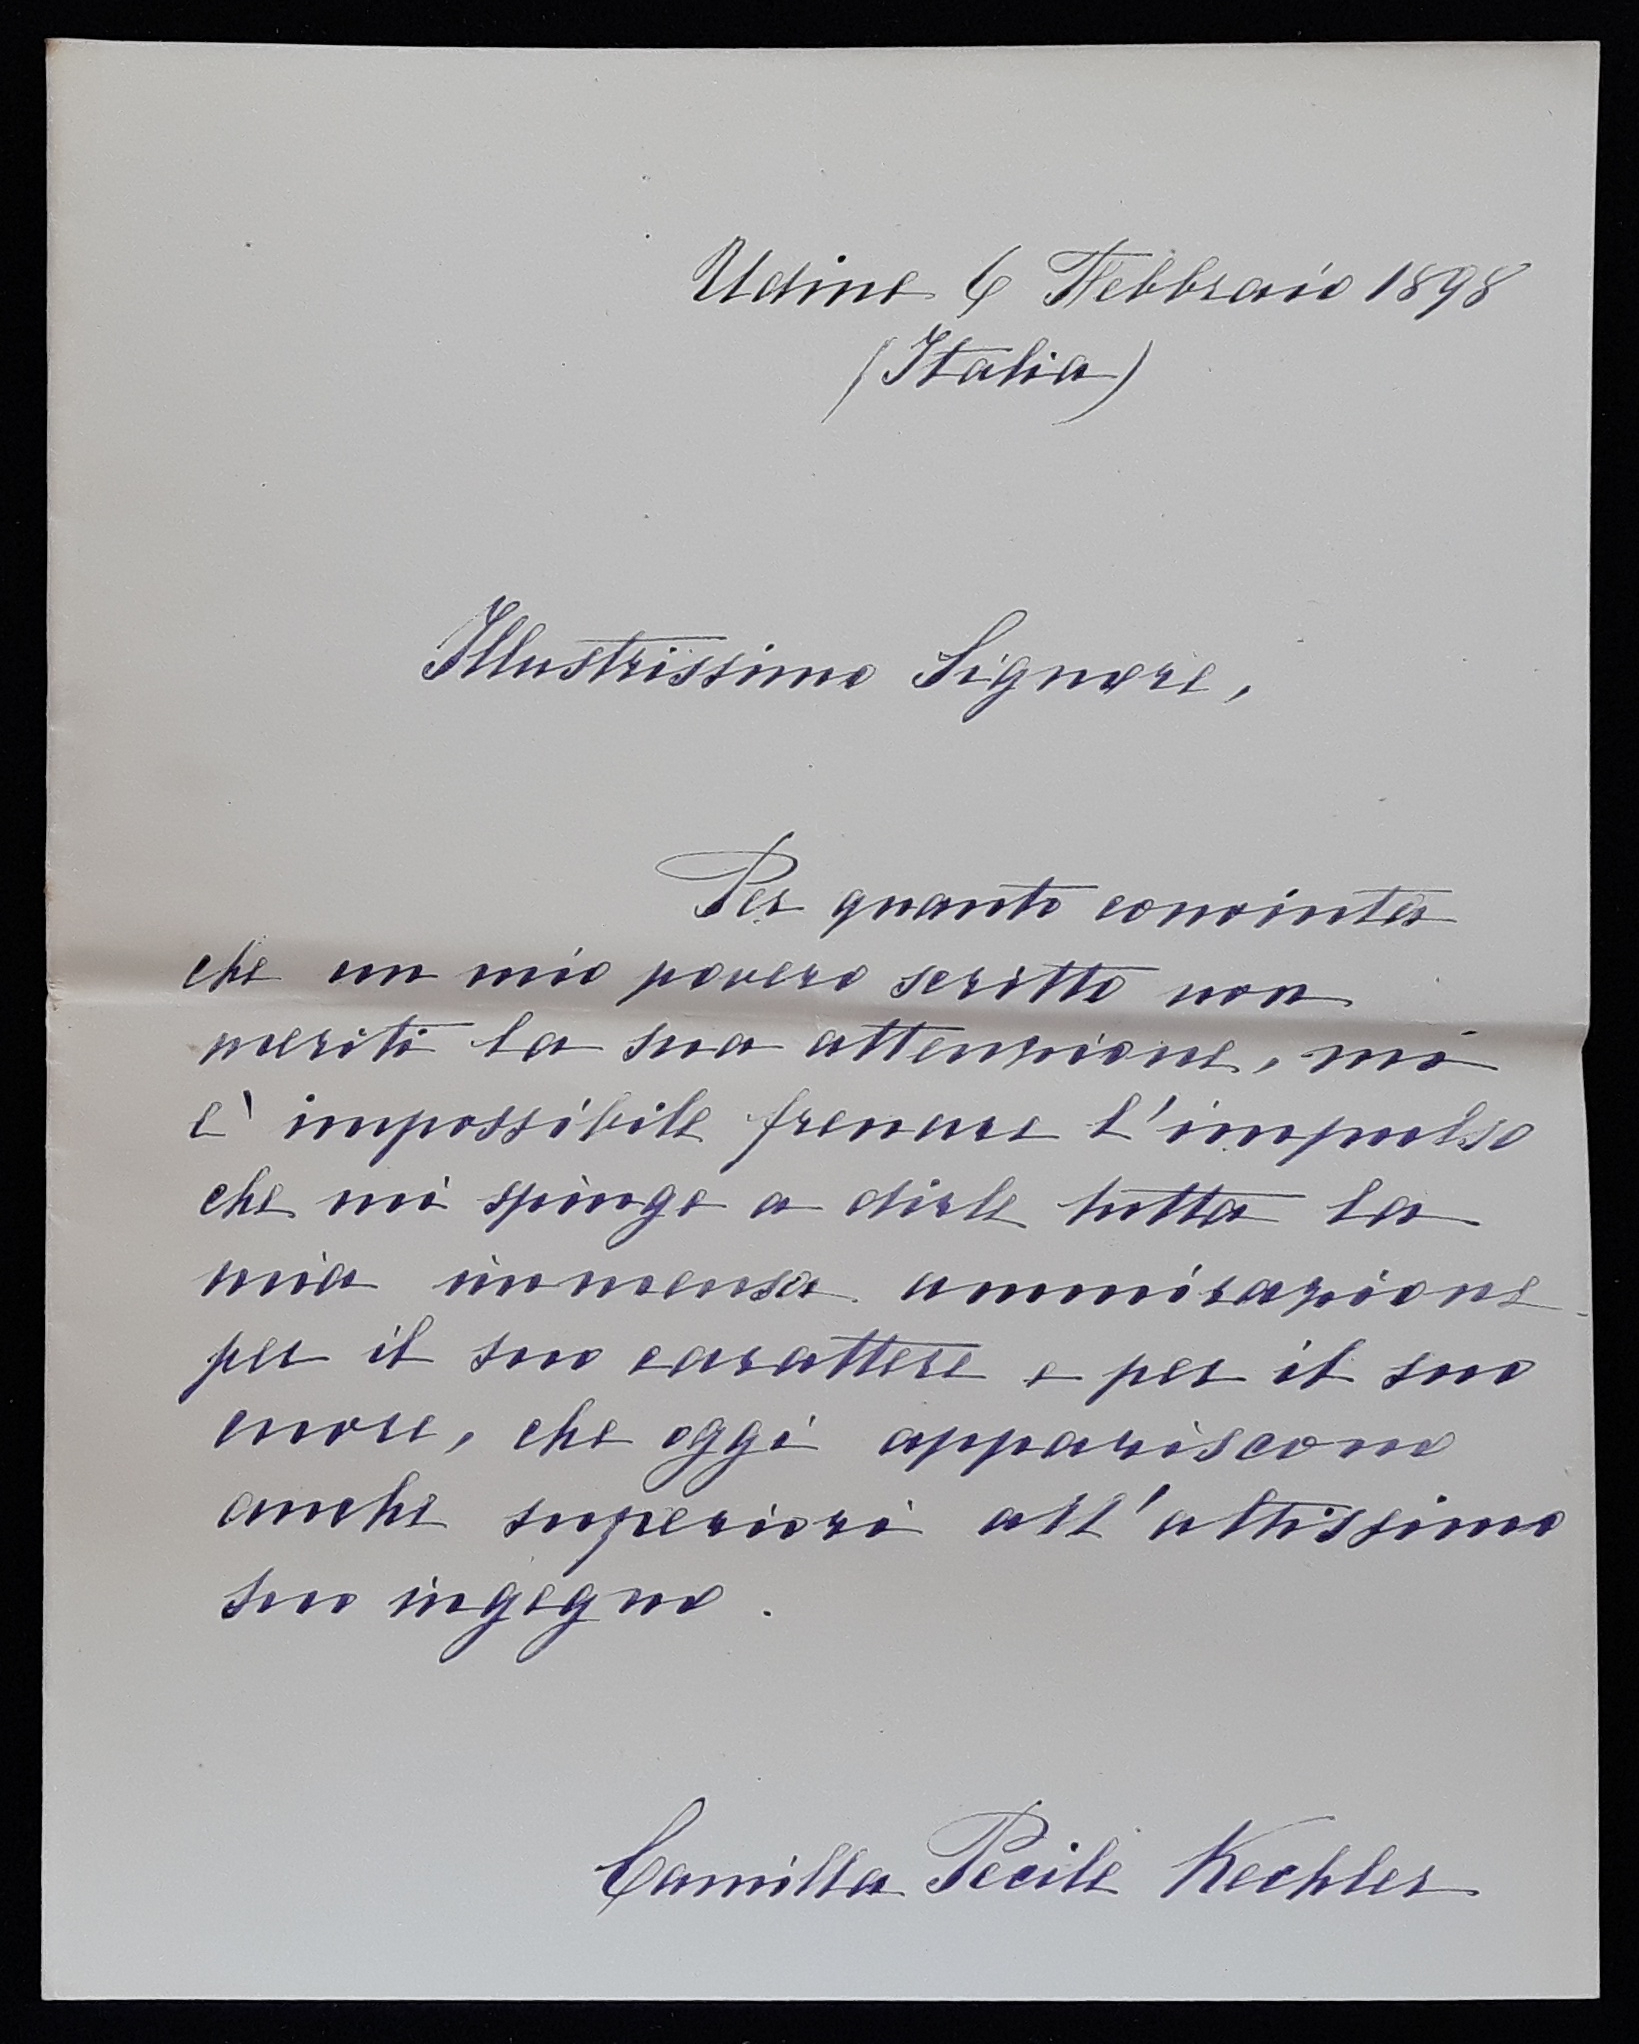 Udine 6 Febbraio 1898
(Italia)
Illustrissimo Signore,
Per quanto convinta
che un mio povero scritto non
meriti la sua attenzione, mi
e' impossibile frenare l'impulso
che mi spinge a dirle tutta la
mia immensa ammirazione
per il suo carattere e per il suo
cuore, che oggi appariscono
anche superiori all'altissimo
suo ingegno.
Camilla Pecile Kechler